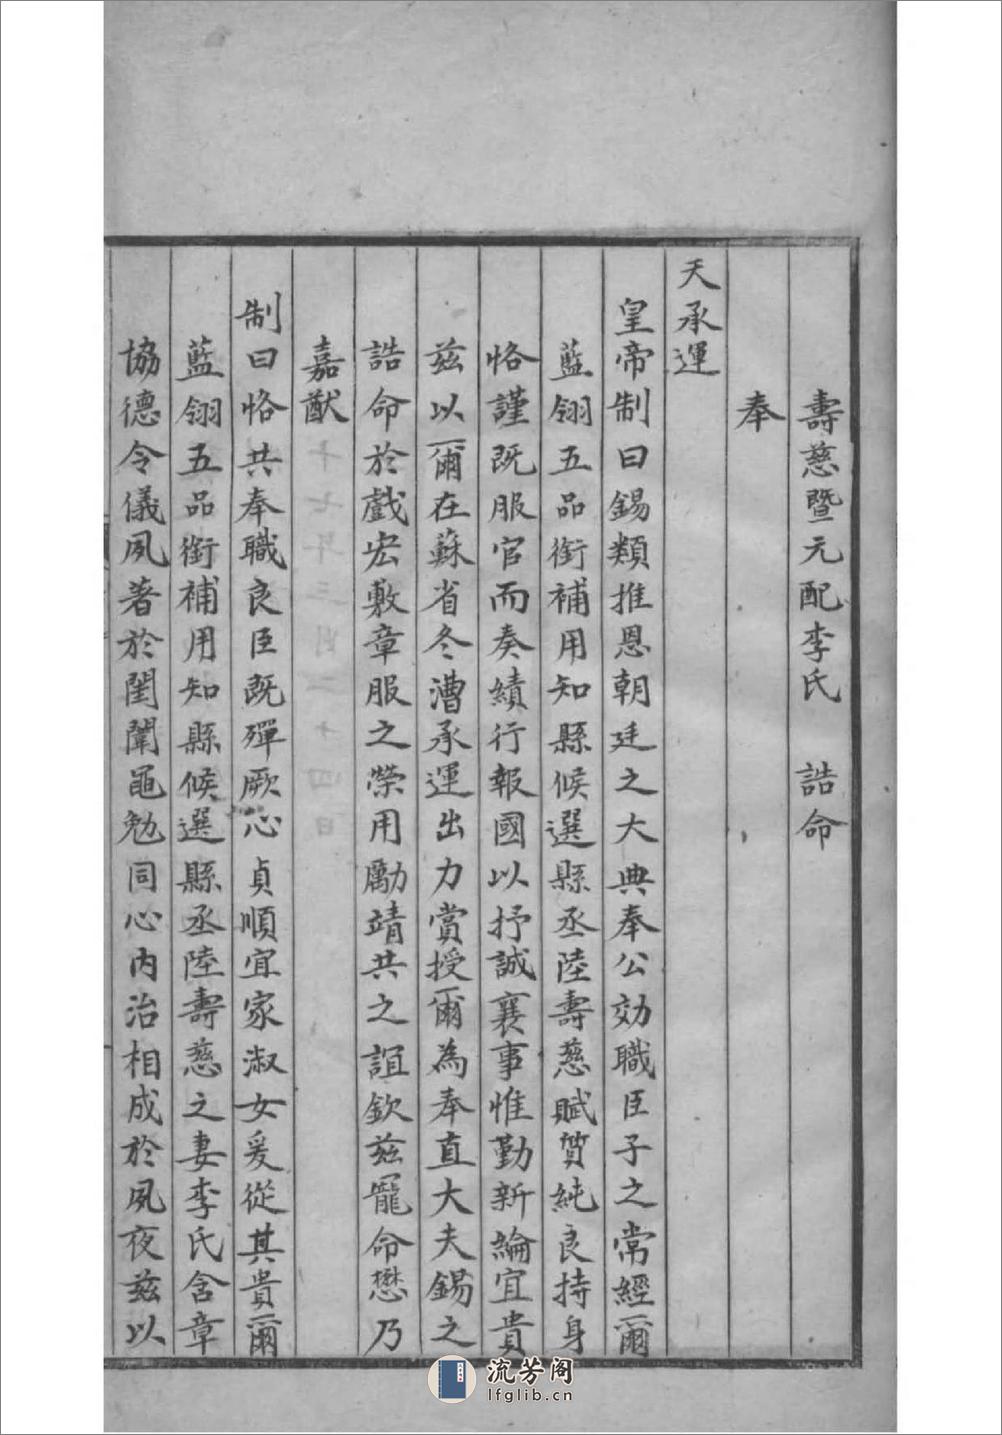 壽慈暨元配李氏　誥命
奉
天承運
皇帝制曰錫類推恩朝廷之大典奉公効職臣子之常經爾
藍翎五品銜補用知縣候選縣丞陸壽慈賦質純良持身
恪謹既服官而奏績行報國以抒誠襄事惟勤新綸宜貴
茲以爾在蘇省冬漕承運出力賞授爾為奉直大夫錫之
誥命於戲宏敷章服之榮用勵靖共之誼欽茲寵命懋乃
嘉猷
制曰恪共奉職良臣既殫厥心貞順宜家淑女爰從其貴爾
藍翎五品銜補用知縣候選縣丞陸壽慈之妻李氏含章
協德令儀夙著於閨闈黽勉同心內治相成於夙夜茲以
流芳阁
lfglib.cn